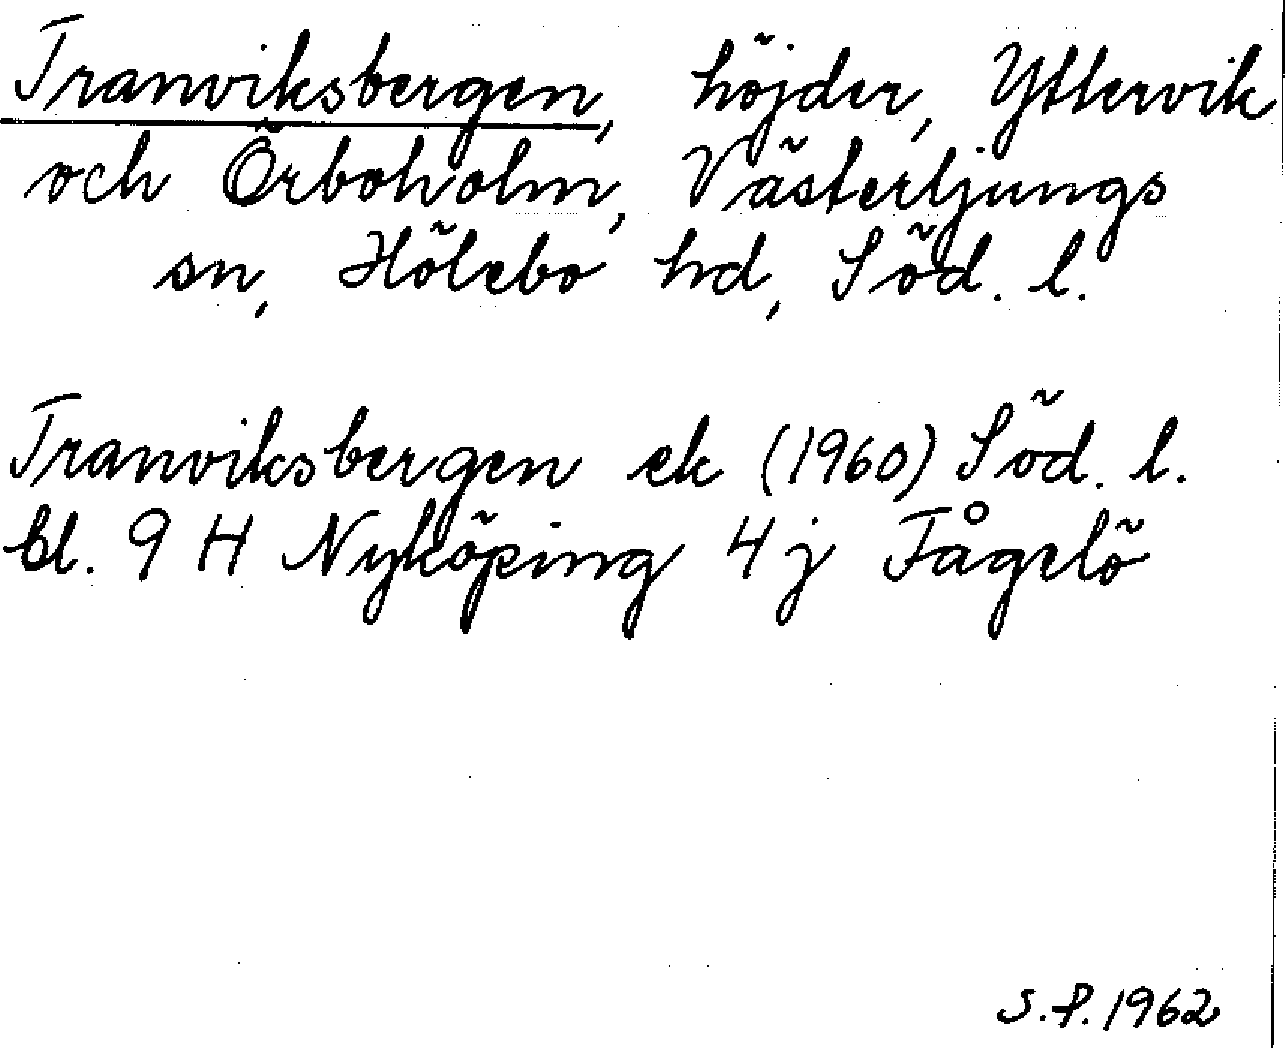 Tranviksbergen, höjder, Yttervik
och Örboholm, Västerljungs
sn, Hölebo hd, Söd. l.
Tranviksbergen ek (1960) Söd. l.
bl. 9 H Nyköping 4 j Fågelö
S.P. 1962